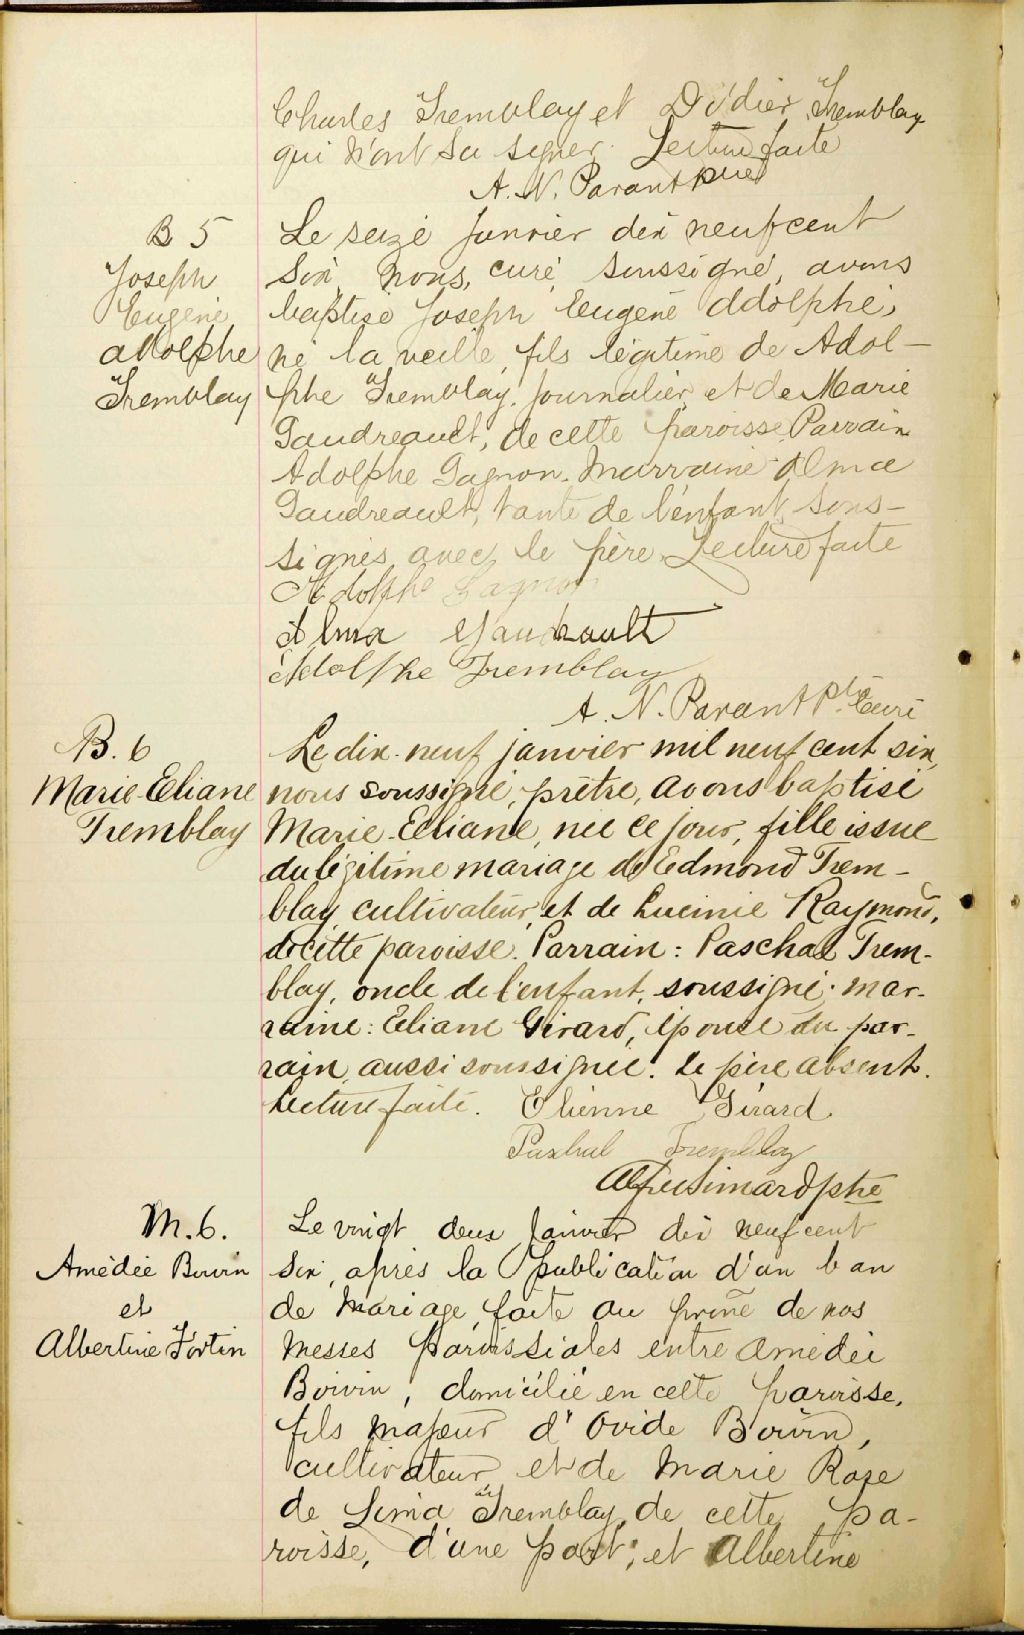 Charles Tremblay et Didier Tremblay
qui n'ont su signer. Lecture faite
A. N. Parant ptre
B 5
Joseph
Eugène
Adolphe
Tremblay
Le seize janvier dix neuf cent
six, nous, curé, soussigné, avons
baptisé Joseph Eugène Adolphe,
né la veille, fils légitime de Adol-
phe Tremblay, journalier, et de Marie
Gaudreault, de cette paroisse. Parrain
Adolphe Gagnon. Marraine Alma
Gaudreault, tante de l'enfant, sous-
signés avec le père. Lecture faite
Adolphe Gagnon
Alma Gaudreault
Adolphe Tremblay
A. N. Parant ptre curé
B. 6
Marie-Eliane
Tremblay
Le dix-neuf janvier mil neuf cent six,
nous soussigné, prêtre, avons baptisé
Marie-Eliane, née ce jour, fille issue
du légitime mariage de Edmond Trem-
blay, cultivateur, et de Lucinie Raymond,
de cette paroisse. Parrain: Paschal Trem-
blay, oncle de l'enfant, soussigné; mar-
raine: Eliane Girard, épouse du par-
rain, aussi soussignée. Le père absent.
Lecture faite. Elienne Girard
Paschal Tremblay
Alfred Simard ptre
M. 6.
Amédée Boivin
et
Albertine Fortin
Le vingt deux Janvier dix neuf cent
six, après la publication d'un ban
de mariage, faite au prône de nos
messes paroissiales entre Amédée
Boivin, domicilié en cette paroisse,
fils majeur d'Ovide Boivin,
cultivateur et de Marie Rose
de Lima Tremblay, de cette pa-
roisse, d'une part; et Albertine